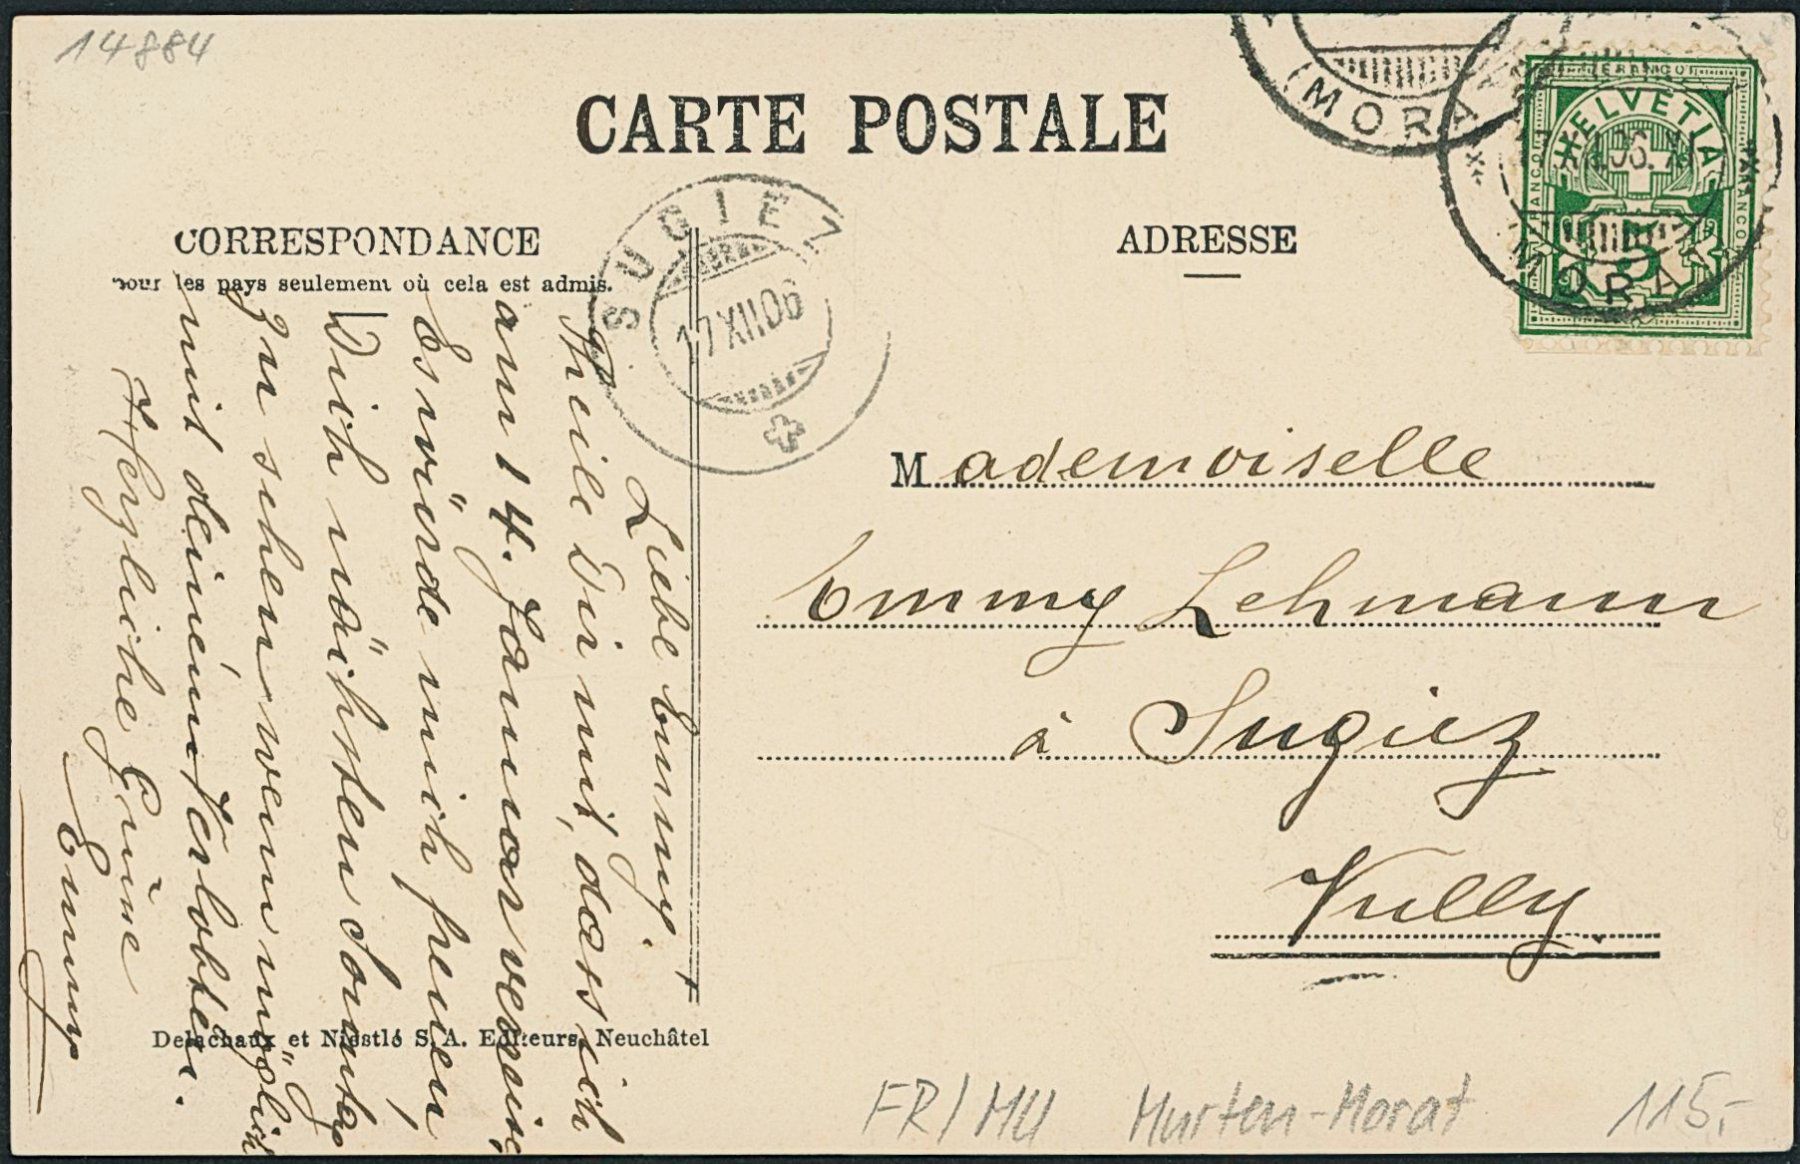 14884
CARTE POSTALE
CORRESPONDANCE
pour les pays seulement où cela est admis.
ADRESSE
SUGIEZ
17 XII 06
(MORA
HELVETIA
FRANCO
5
MORAT
Mademoiselle
Emmy Lehmann
à Sugiez
Vully.
Liebe Emmy.
Theile Dir mit, dass ich
am 14. Januar verreise,
Es würde mich freuen,
Dich nächsten Sonntag
zu sehen wenn möglich
mit deinem Verlobten.
Herzliche Grüsse
Emmy
Delachaux et Niestlé S. A. Editeurs, Neuchâtel
FR/MU Murten-Morat 115.-